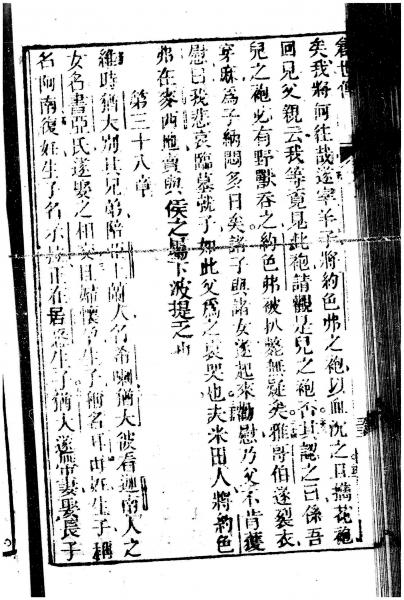 創世傳
矣我將何往哉遂宰羊子將約色弗之袍以血沉之且攜花袍
回見父親云我等竟見此袍請觀是兒之袍否其認之曰係吾
兒之袍必有野獸吞之約色弗被扒毙無疑矣雅哥伯遂裂衣
穿蔴為子納悶多日矣諸子與諸女遂起來勸慰乃父不肯獲
慰曰我悲哀臨墓就子如此父為之哀哭也夫米田人將約色
弗在麥西地賣與侯之
波提乏也
第三十八章
維時猶大別其兄弟陪
人名希喇猶大彼看迦南人之
女名書亞氏遂娶之相交且婦懷孕生子
名耳再姙生子稱
名阿南復姙生子名示
正在居
生子猶大遂
妻娶長子